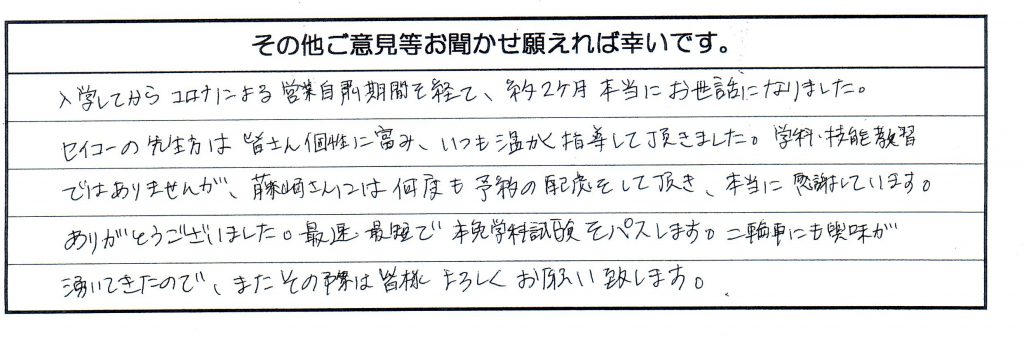 その他ご意見等お聞かせ願えれば幸いです。
入学してから コロナによる 営業自粛期間を経て、約2ケ月 本当に お世話になりました。
セイコーの先生方は 皆さん個性に富み、いつも温かく指導して頂きました。学科・技能教習
ではありませんが、藤崎さんには何度も予約の配慮をして頂き、本当に感謝しています。
ありがとうございました。最速・最短で本免学科試験をパスします。二輪車にも興味が
湧いてきたので、またその際は皆様よろしくお願い致します。